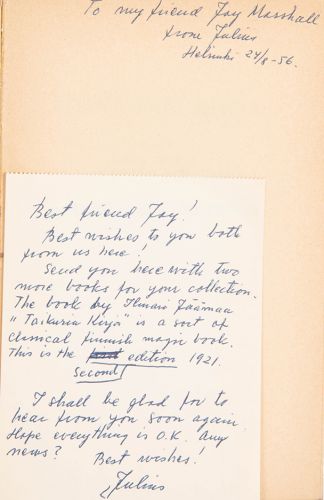 To my friend Jay Marshall
from Julius
Helsinki 24/8-56.
Best friend Jay!
Best wishes to you both
from us here!
Send you here with two
more books for your collection.
The book by Ilmari Jäämaa
"Taikurin Kirja" is a sort of
classical finnish magic book.
This is the first edition 1921.
second
I shall be glad for to
hear from you soon again.
Hope everything is O.K. Any
news? Best wishes!
Julius